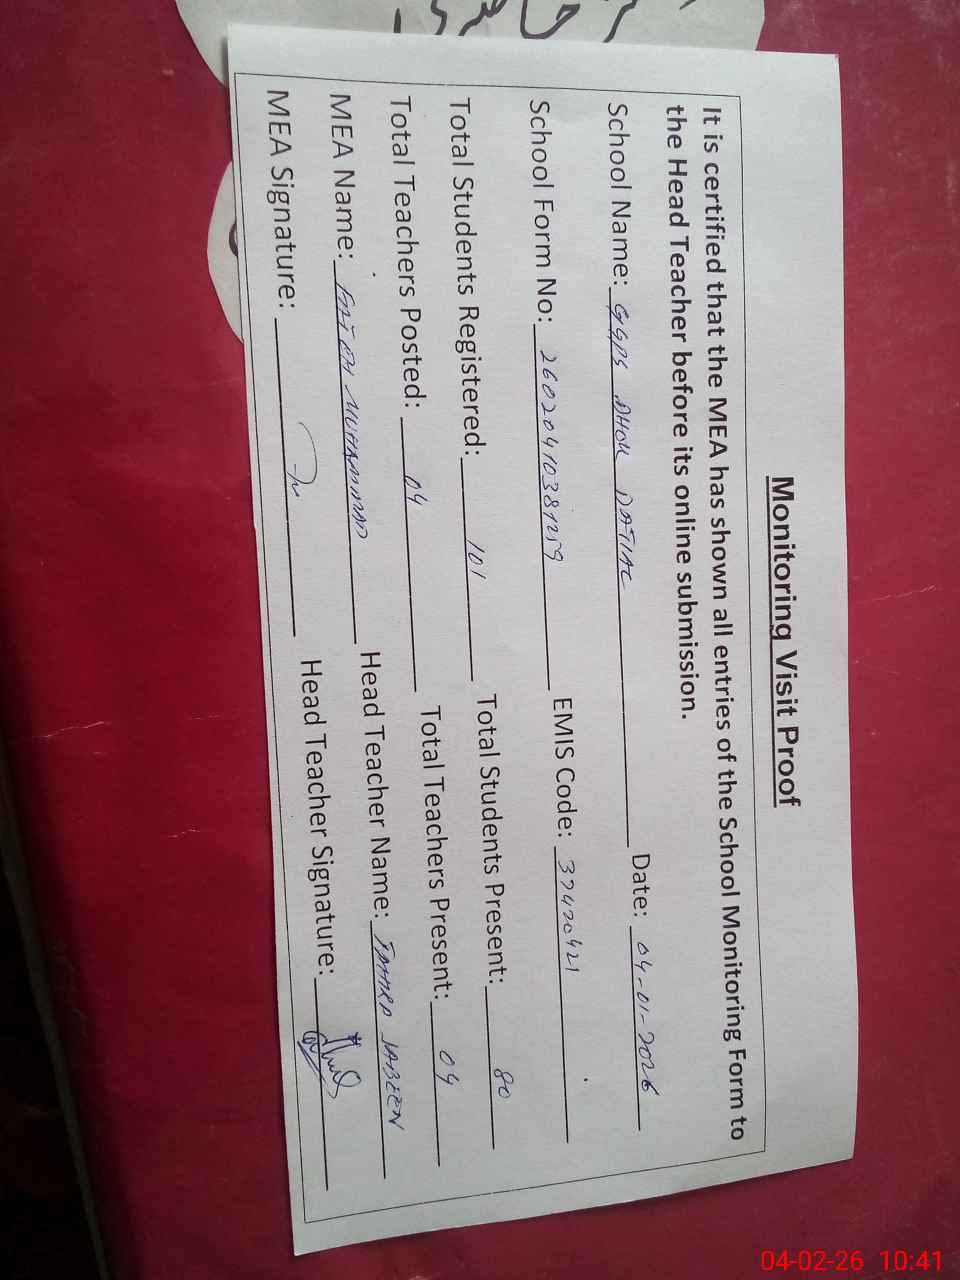 Monitoring Visit Proof
It is certified that the MEA has shown all entries of the School Monitoring Form to
the Head Teacher before its online submission.
School Name: GGPS DHOK DATIAL Date: 04-01-2026
School Form No: 26020410381259 EMIS Code: 37420421
Total Students Registered: 101 Total Students Present: 80
Total Teachers Posted: 04 Total Teachers Present: 04
MEA Name: MUHAMMAD Head Teacher Name: TAHIRA JABEEN
MEA Signature: Head Teacher Signature:
04-02-26 10:41